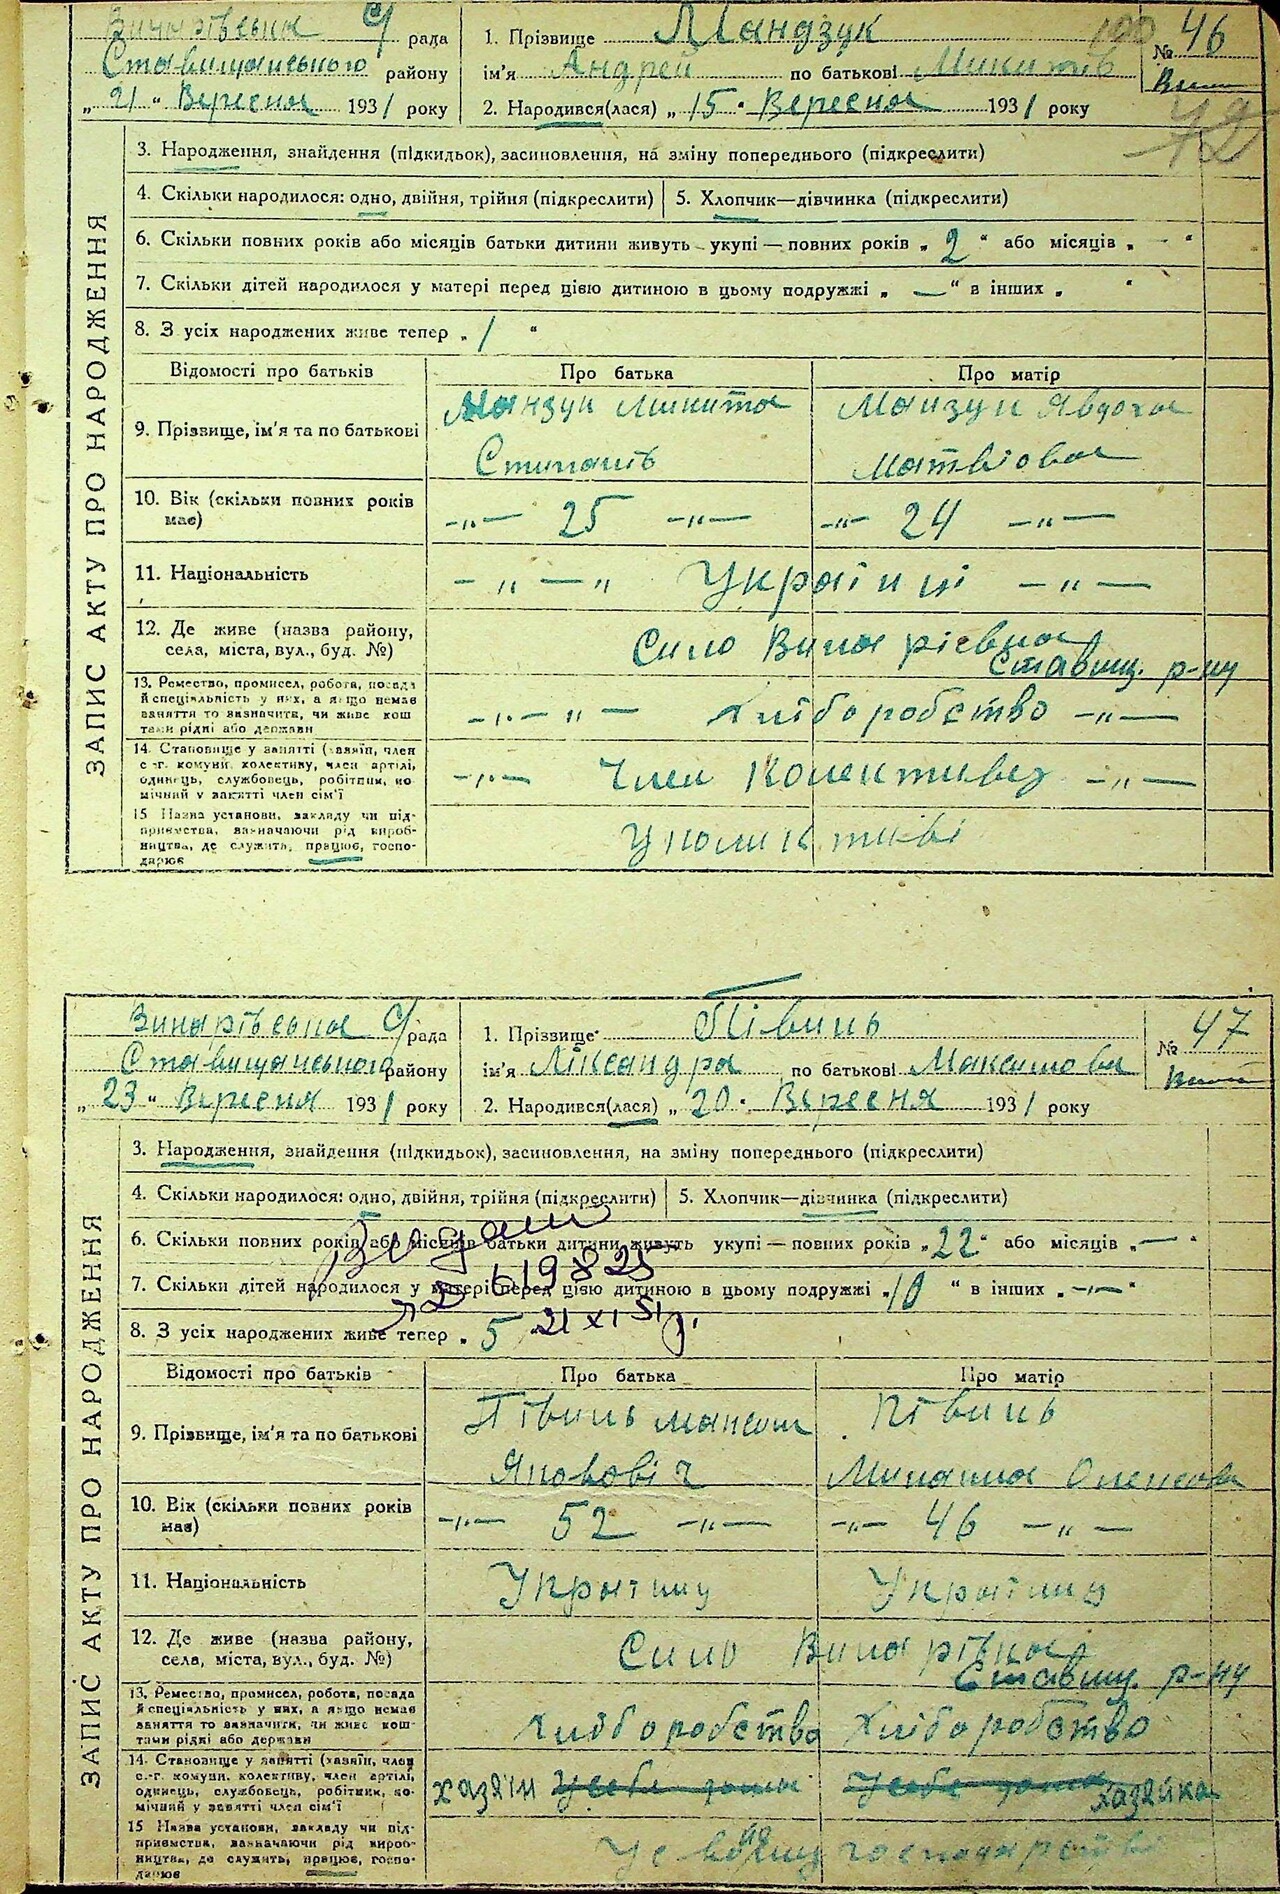 Винарівська С/рада
Ставищанського району
„ 21 " Вересня 1931 року
1. Прізвище Мандзук
ім'я Андрей по батькові Микитів
2. Народився(лася) „ 15 " Вересня 1931 року
100
№ 46
ЗАПИС АКТУ ПРО НАРОДЖЕННЯ
3. Народження, знайдення (підкидьок), засиновлення, на зміну попереднього (підкреслити)
4. Скільки народилося: одно, двійня, трійня (підкреслити)
5. Хлопчик—дівчинка (підкреслити)
6. Скільки повних років або місяців батьки дитини живуть укупі — повних років „ 2 " або місяців „ — "
7. Скільки дітей народилося у матері перед цією дитиною в цьому подружжі „ — " в інших „ "
8. З усіх народжених живе тепер „ 1 "
Відомості про батьків
Про батька
Про матір
9. Прізвище, ім'я та по батькові
Манзук Микита
Манзук Явдоха
Матвіова
10. Вік (скільки повних років має)
—„— 25 —„—
—„— 24 —„—
11. Національність
—„—„ Україн —„—
12. Де живе (назва району,
села, міста, вул., буд. №)
Сило Винарівка
Ставищ. р-ну
13. Ремество, промисел, робота, посада
й спеціяльність у них, а якщо немає
заняття то зазначити, чи живе кош-
тами рідні або держави
—„—„— хліборобство —„—
14. Становище у занятті (хазяїн, член
с.-г. комуни, колективу, член артілі,
одинець, службовець, робітник, по-
мічний у занятті член сім'ї
—„— Член Колективу —„—
15 Назва установи, закладу чи під-
приємства, зазначаючи рід вироб-
ництва, де служить, працює, госпо-
дарює
У коликтиві
Винарівська С/рада
Ставищанського району
„ 23 " Вересня 1931 року
1. Прізвище Півинь
ім'я Ліксандра по батькові Максимова
2. Народився(лася) „ 20 " Вересня 1931 року
№ 47
ЗАПИС АКТУ ПРО НАРОДЖЕННЯ
3. Народження, знайдення (підкидьок), засиновлення, на зміну попереднього (підкреслити)
4. Скільки народилося: одно, двійня, трійня (підкреслити)
5. Хлопчик—дівчинка (підкреслити)
6. Скільки повних років або місяців батьки дитини живуть укупі — повних років „ 22 " або місяців „ — "
7. Скільки дітей народилося у матері перед цією дитиною в цьому подружжі „ 10 " в інших „ —„— "
8. З усіх народжених живе тепер „ 5
619825
21 XI 51 р.
Відомості про батьків
Про батька
Про матір
9. Прізвище, ім'я та по батькові
Півинь Максим
Яковович
Півинь
10. Вік (скільки повних років має)
—„— 52 —„—
—„— 46 —„—
11. Національність
Українц
Українц
12. Де живе (назва району,
села, міста, вул., буд. №)
Сило Винарівка
Ставищ. р-ну
13. Ремество, промисел, робота, посада
й спеціяльність у них, а якщо немає
заняття то зазначити, чи живе кош-
тами рідні або держави
хліборобство
хліборобство
14. Становище у занятті (хазяїн, член
с.-г. комуни, колективу, член артілі,
одинець, службовець, робітник, по-
мічний у занятті член сім'ї
хазяїн
хазяйка
15 Назва установи, закладу чи під-
приємства, зазначаючи рід вироб-
ництва, де служить, працює, госпо-
дарює
господарстві